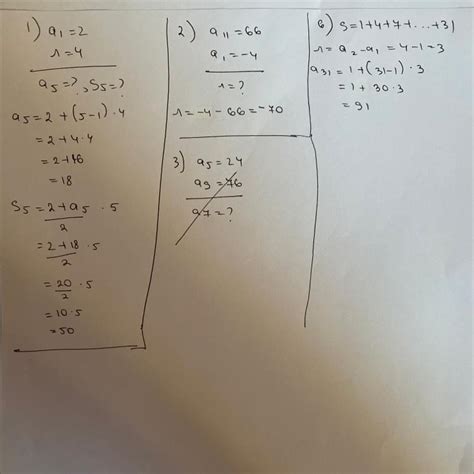 1) a₁=2
r=4
a₅=?, S₅=?
a₅=2+(5-1)·4
=2+4·4
=2+16
=18
S₅=2+a₅/2 ·5
=2+18/2 ·5
=20/2 ·5
=10·5
=50
2) a₁₁=66
a₁=-4
r=?
r=-4-66=-70
3) a₅=24
a₉=76
a₇=?
6) S=1+4+7+...+31
r=a₂-a₁=4-1=3
a₃₁=1+(31-1)·3
=1+30·3
=91